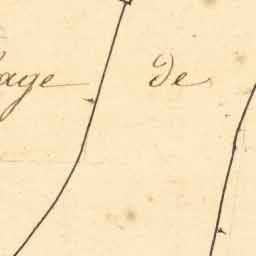 age de